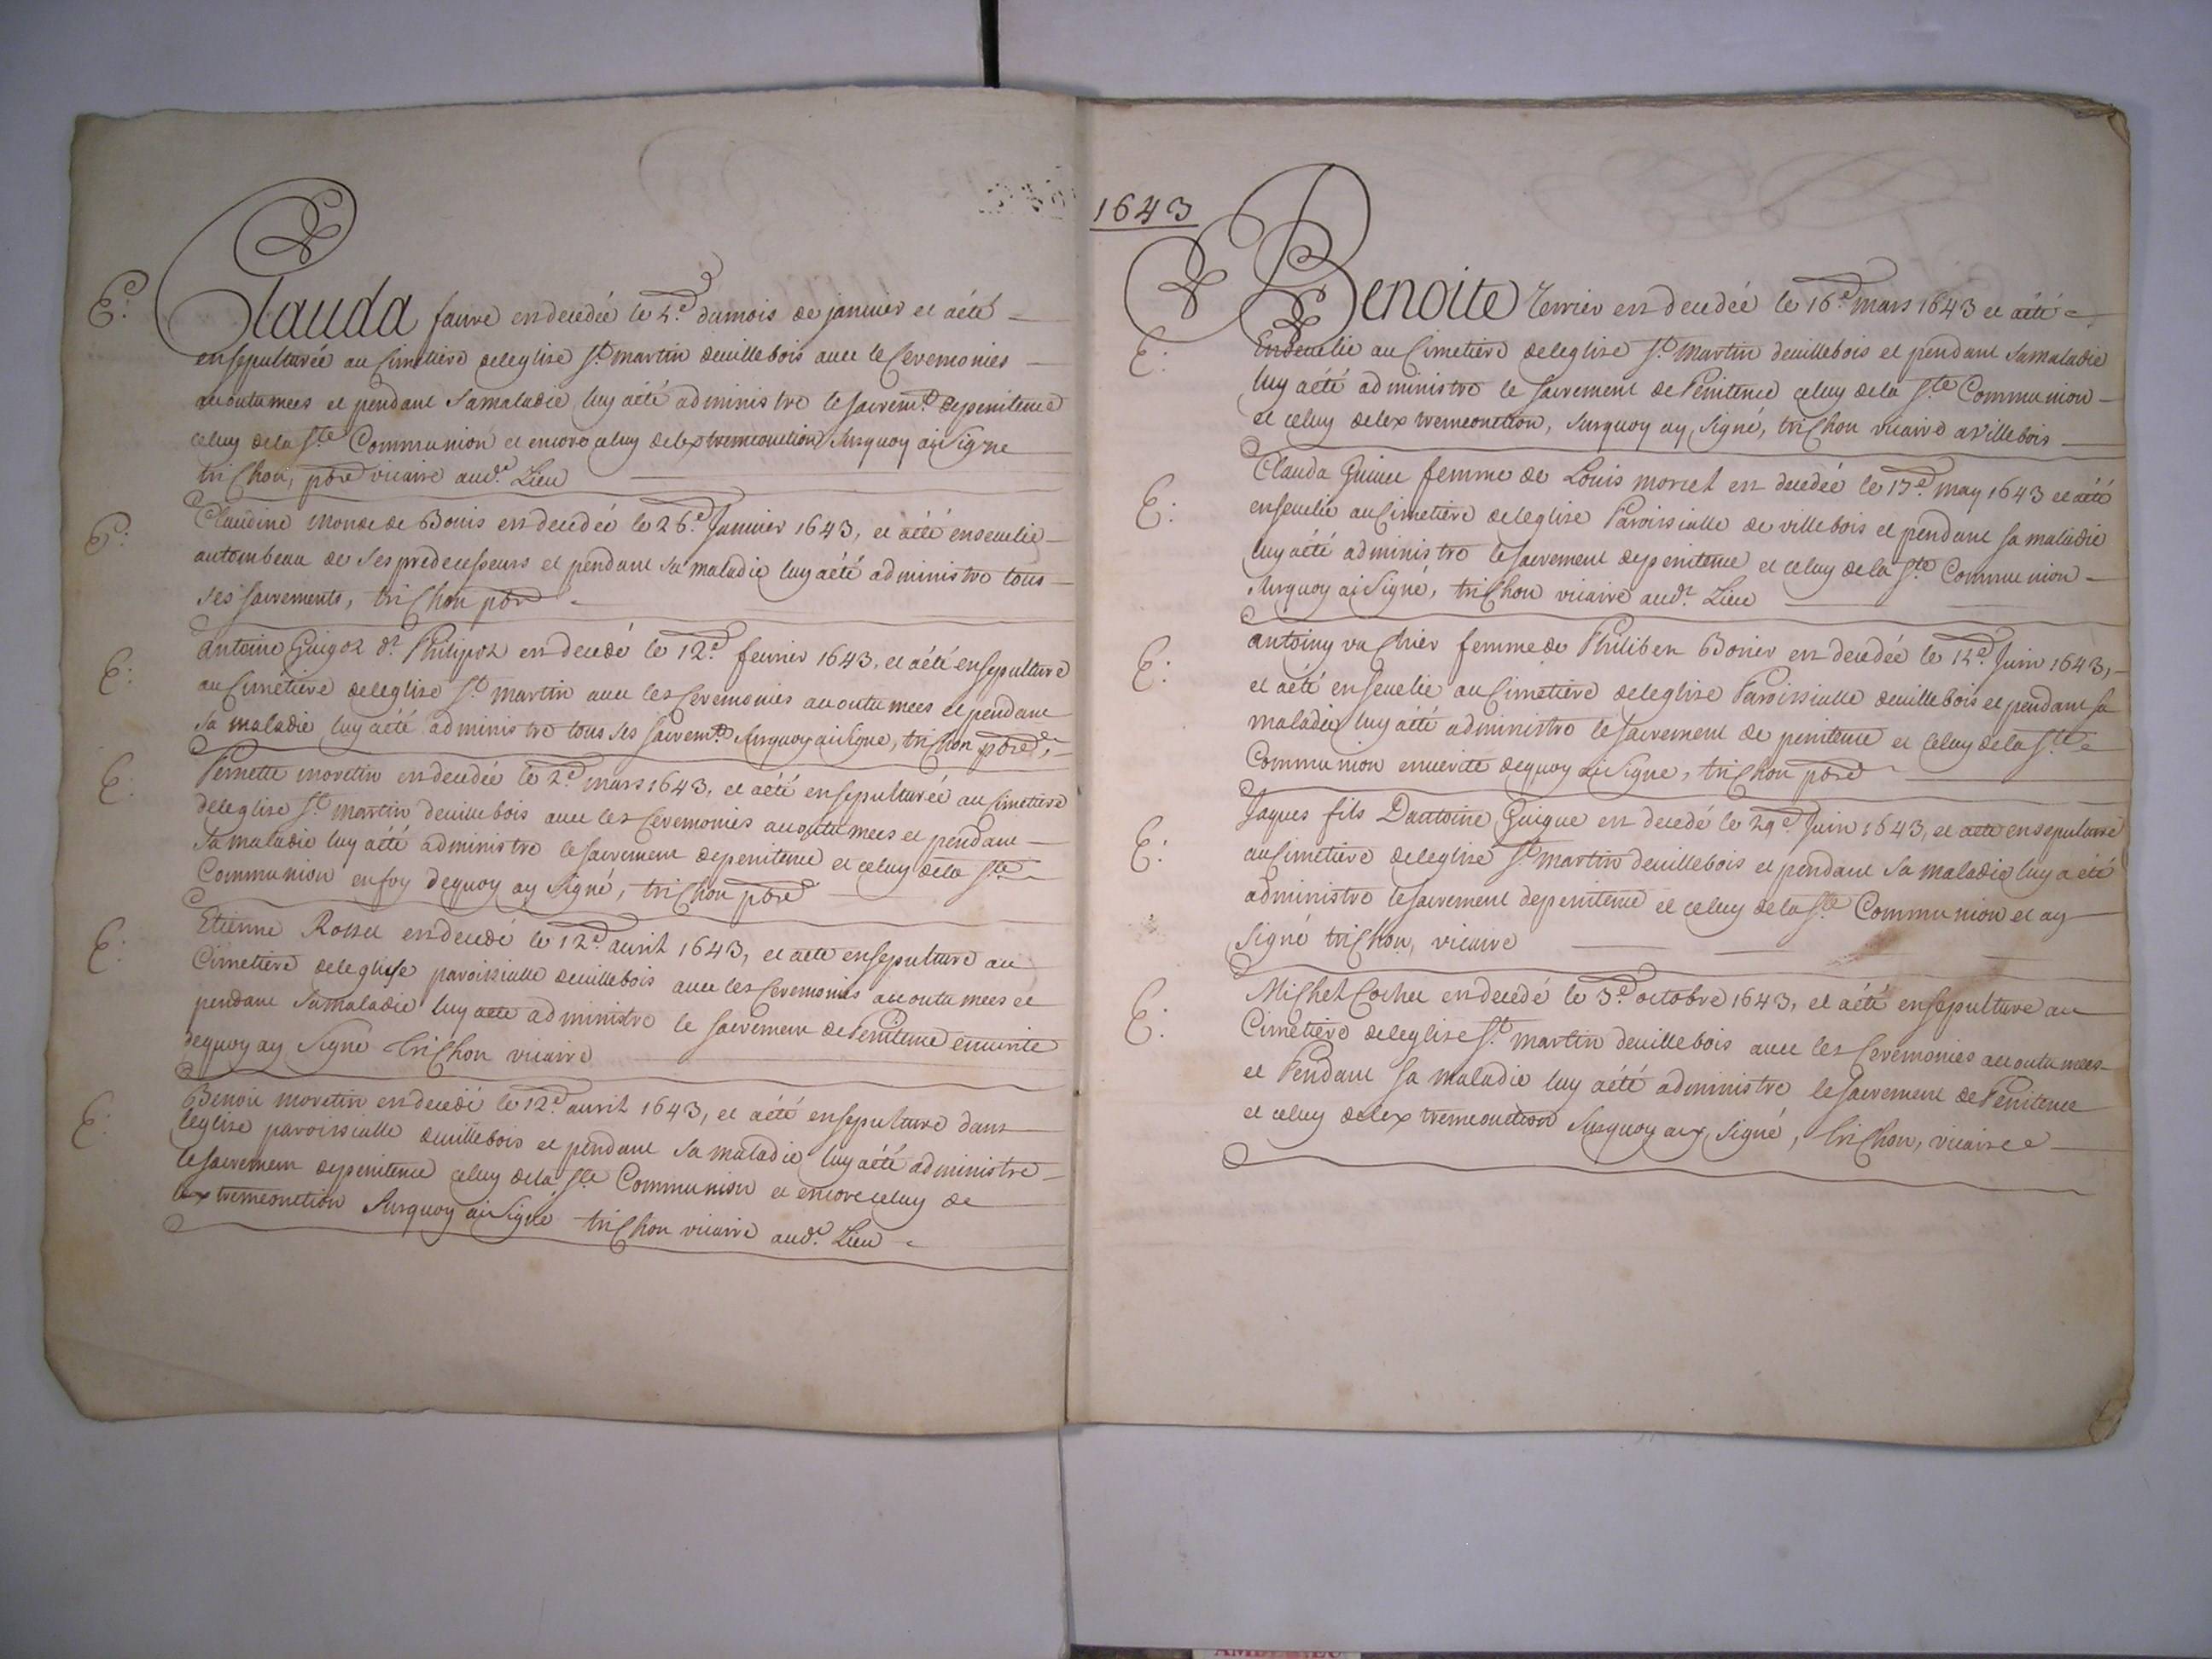 E.
Clauda faure est decedée le 4.e dumois de janvier et aété
ensepulturée au Cimetiere deleglise St. martin deuillebois auec le Ceremonies
accoutumees et pendant Samaladie luy aété administre le sacrem.t depenitence
celuy dela Ste Communion et encore celuy delextremeonction Surquoy aiSigne
trichon, pbre vicaire aud.t Lieu
E.
Claudine monde de Bouis est decedée le 26.e Januier 1643, et aété enseuelie
autombeau de ses predecesseurs et pendant sa maladie luy aété administre tous
ses sacrements, trichon pbre
E.
antoine Guigoz d.t Philipoz est decedé le 12.e feurier 1643, et aété ensepulture
au Cimetiere deleglise St. martin auec les Ceremonies accoutumees et pendant
sa maladie luy aété administre tous ses sacrem.ts Surquoy aisigne, trichon pbre
E.
Pernette moretin est decedée le 2.e mars 1643, et aété ensepulturée au Cimetiere
deleglise St. martin deuillebois auec les Ceremonies accoutumees et pendant
samaladie luy aété administre le sacrement depenitence et celuy dela Ste
Communion enfoy dequoy ay Signé, trichon pbre
E.
Etienne Rosset est decedé le 12.e auril 1643, et aete ensepulture au
Cimetiere deleglise paroissialle deuillebois auec les Ceremonies accoutumees et
pendant Samaladie luy aete administre le sacrement de Penitence
dequoy ay Signe trichon vicaire
E.
Benoit moretin est decedé le 12.e auril 1643, et aété ensepulture dans
leglise paroissialle deuillebois et pendant sa maladie luy aété administre
lesacrement depenitence celuy dela Ste Communion et encore celuy de
lextremeonction Surquoy ai Signé trichon vicaire aud.t Lieu
1643
E.
Benoite terrier est decedée le 16.e mars 1643 et aété
Enseuelie au Cimetiere deleglise St. Martin deuillebois et pendant Samaladie
luy aété administre le sacrement de Penitence celuy dela Ste Communion
et celuy delextremeonction, surquoy ay Signé, trichon vicaire avillebois
E.
Clauda Guigue femme de Louis moret est decedée le 17.e may 1643 et aété
enseuelie au Cimetiere deleglise Paroissialle de villebois et pendant sa maladie
luy aété administre le sacrement depenitence et celuy dela Ste Communion
Surquoy ai Signé, trichon vicaire aud.t Lieu
E.
antoiny vachier femme de Philibert Borier est decedée le 12.e Juin 1643,
et aété enseuelie au Cimetiere deleglise Paroissialle deuillebois et pendant sa
maladie luy aété administre le sacrement de penitence et Celuy dela Ste
Communion dequoy ai Signe, trichon pbre
E.
Jaques fils Dantoine Guigue est decedé le 29.e Juin 1643, et aete ensepulturé
au Cimetiere deleglise St. martin deuillebois et pendant sa maladie luy a été
administre le sacrement depenitence et celuy dela Ste Communion et ay
Signé trichon, vicaire
E.
Michel Cochet est decedé le 3.e octobre 1643, et aété ensepulture au
Cimetiere deleglise St. martin deuillebois auec les Ceremonies accoutumees
et Pendant sa maladie luy aété administre le sacrement de Penitence
et celuy delextremeonction Surquoy ay Signé, trichon, vicaire